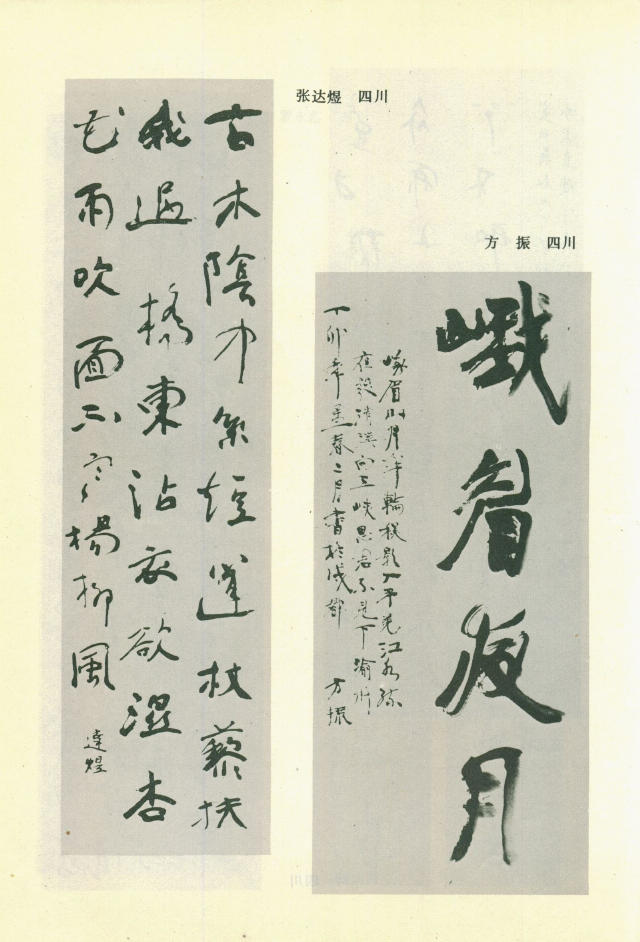 张达煜 四川
古木陰中系短篷杖藜扶
我過橋東沾衣欲濕杏
花雨吹面不寒楊柳風
達煜
方 振 四川
峨眉夜月
峨眉山月半輪秋影入平羌江水流
夜發清溪向三峽思君不見下渝州
丁卯年孟春二月書於成都 方振